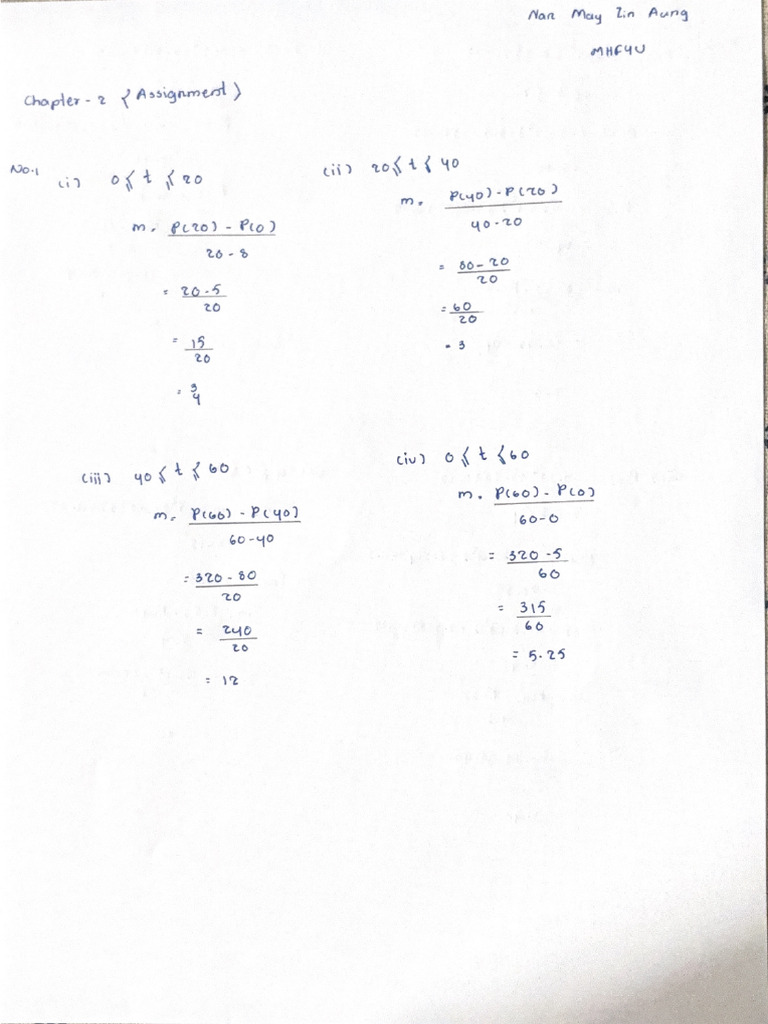 Nan May Zin Aung
MHF4U
Chapter - 2 {Assignment}
No.1 (i) 0 ≤ t ≤ 20
m = P(20) - P(0)
20 - 8
= 20 - 5
20
= 15
20
= 3
4
(ii) 20 ≤ t ≤ 40
m = P(40) - P(20)
40 - 20
= 80 - 20
20
= 60
20
= 3
(iii) 40 ≤ t ≤ 60
m = P(60) - P(40)
60 - 40
= 320 - 80
20
= 240
20
= 12
(iv) 0 ≤ t ≤ 60
m = P(60) - P(0)
60 - 0
= 320 - 5
60
= 315
60
= 5.25